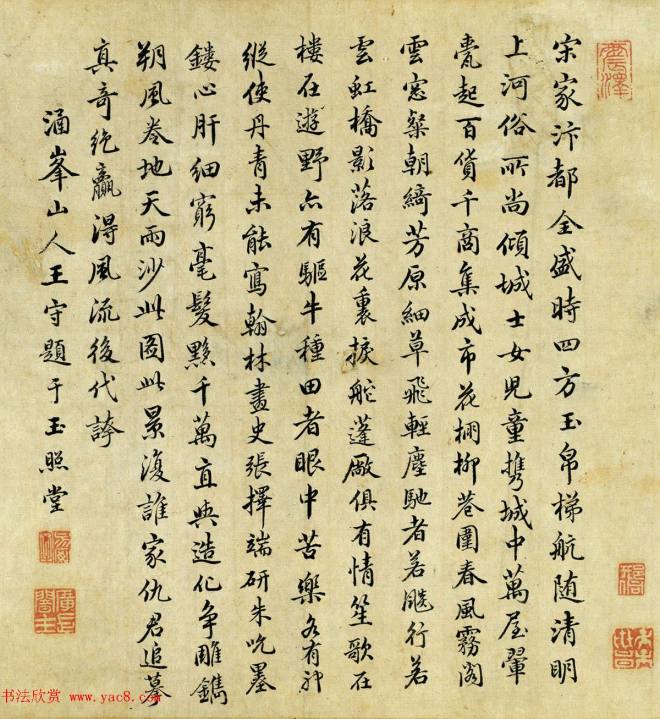 宋家汴都全盛時四方玉帛梯航随清明
上河俗所尚傾城士女兒童攜城中萬屋翬
甍起百貨千商集成市花棚柳巷圍春風霧閣
雲窓粲朝綺芳原細草飛輕塵馳者若飈行若
雲虹橋影落浪花裏捩舵蓬廠俱有情笙歌在
樓在遊野亦有驅牛種田者眼中苦樂各有
縱使丹青未能寫翰林畫史張擇端研朱吮墨
鏤心肝細窮毫髮夥千萬直與造化争雕鐫
朔風卷地天雨沙此圖此景復誰家仇君追摹
真奇絶贏得風流後代誇
涵峯山人王守題于玉照堂
书法欣赏 www.yac8.com